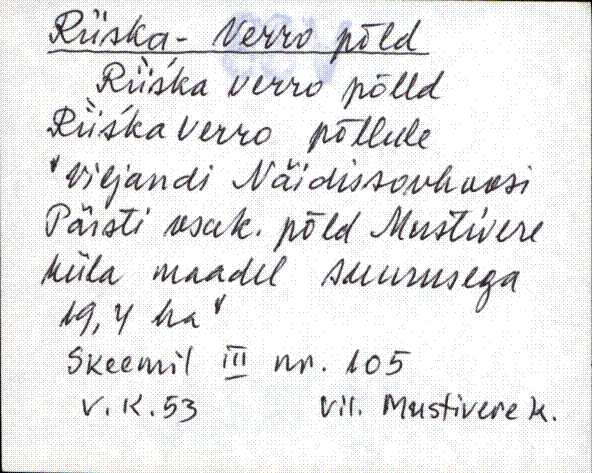 Rüska-Verro põld
Rǜśka verro põlld
Rǜśka verro põllule
"Viljandi Näidissovhoosi
Päisti osak. põld Mustivere
küla maadel suurusega
19,4 ha"
Skeemil III nr. 105
V.K.53 Vil. Mustivere k.